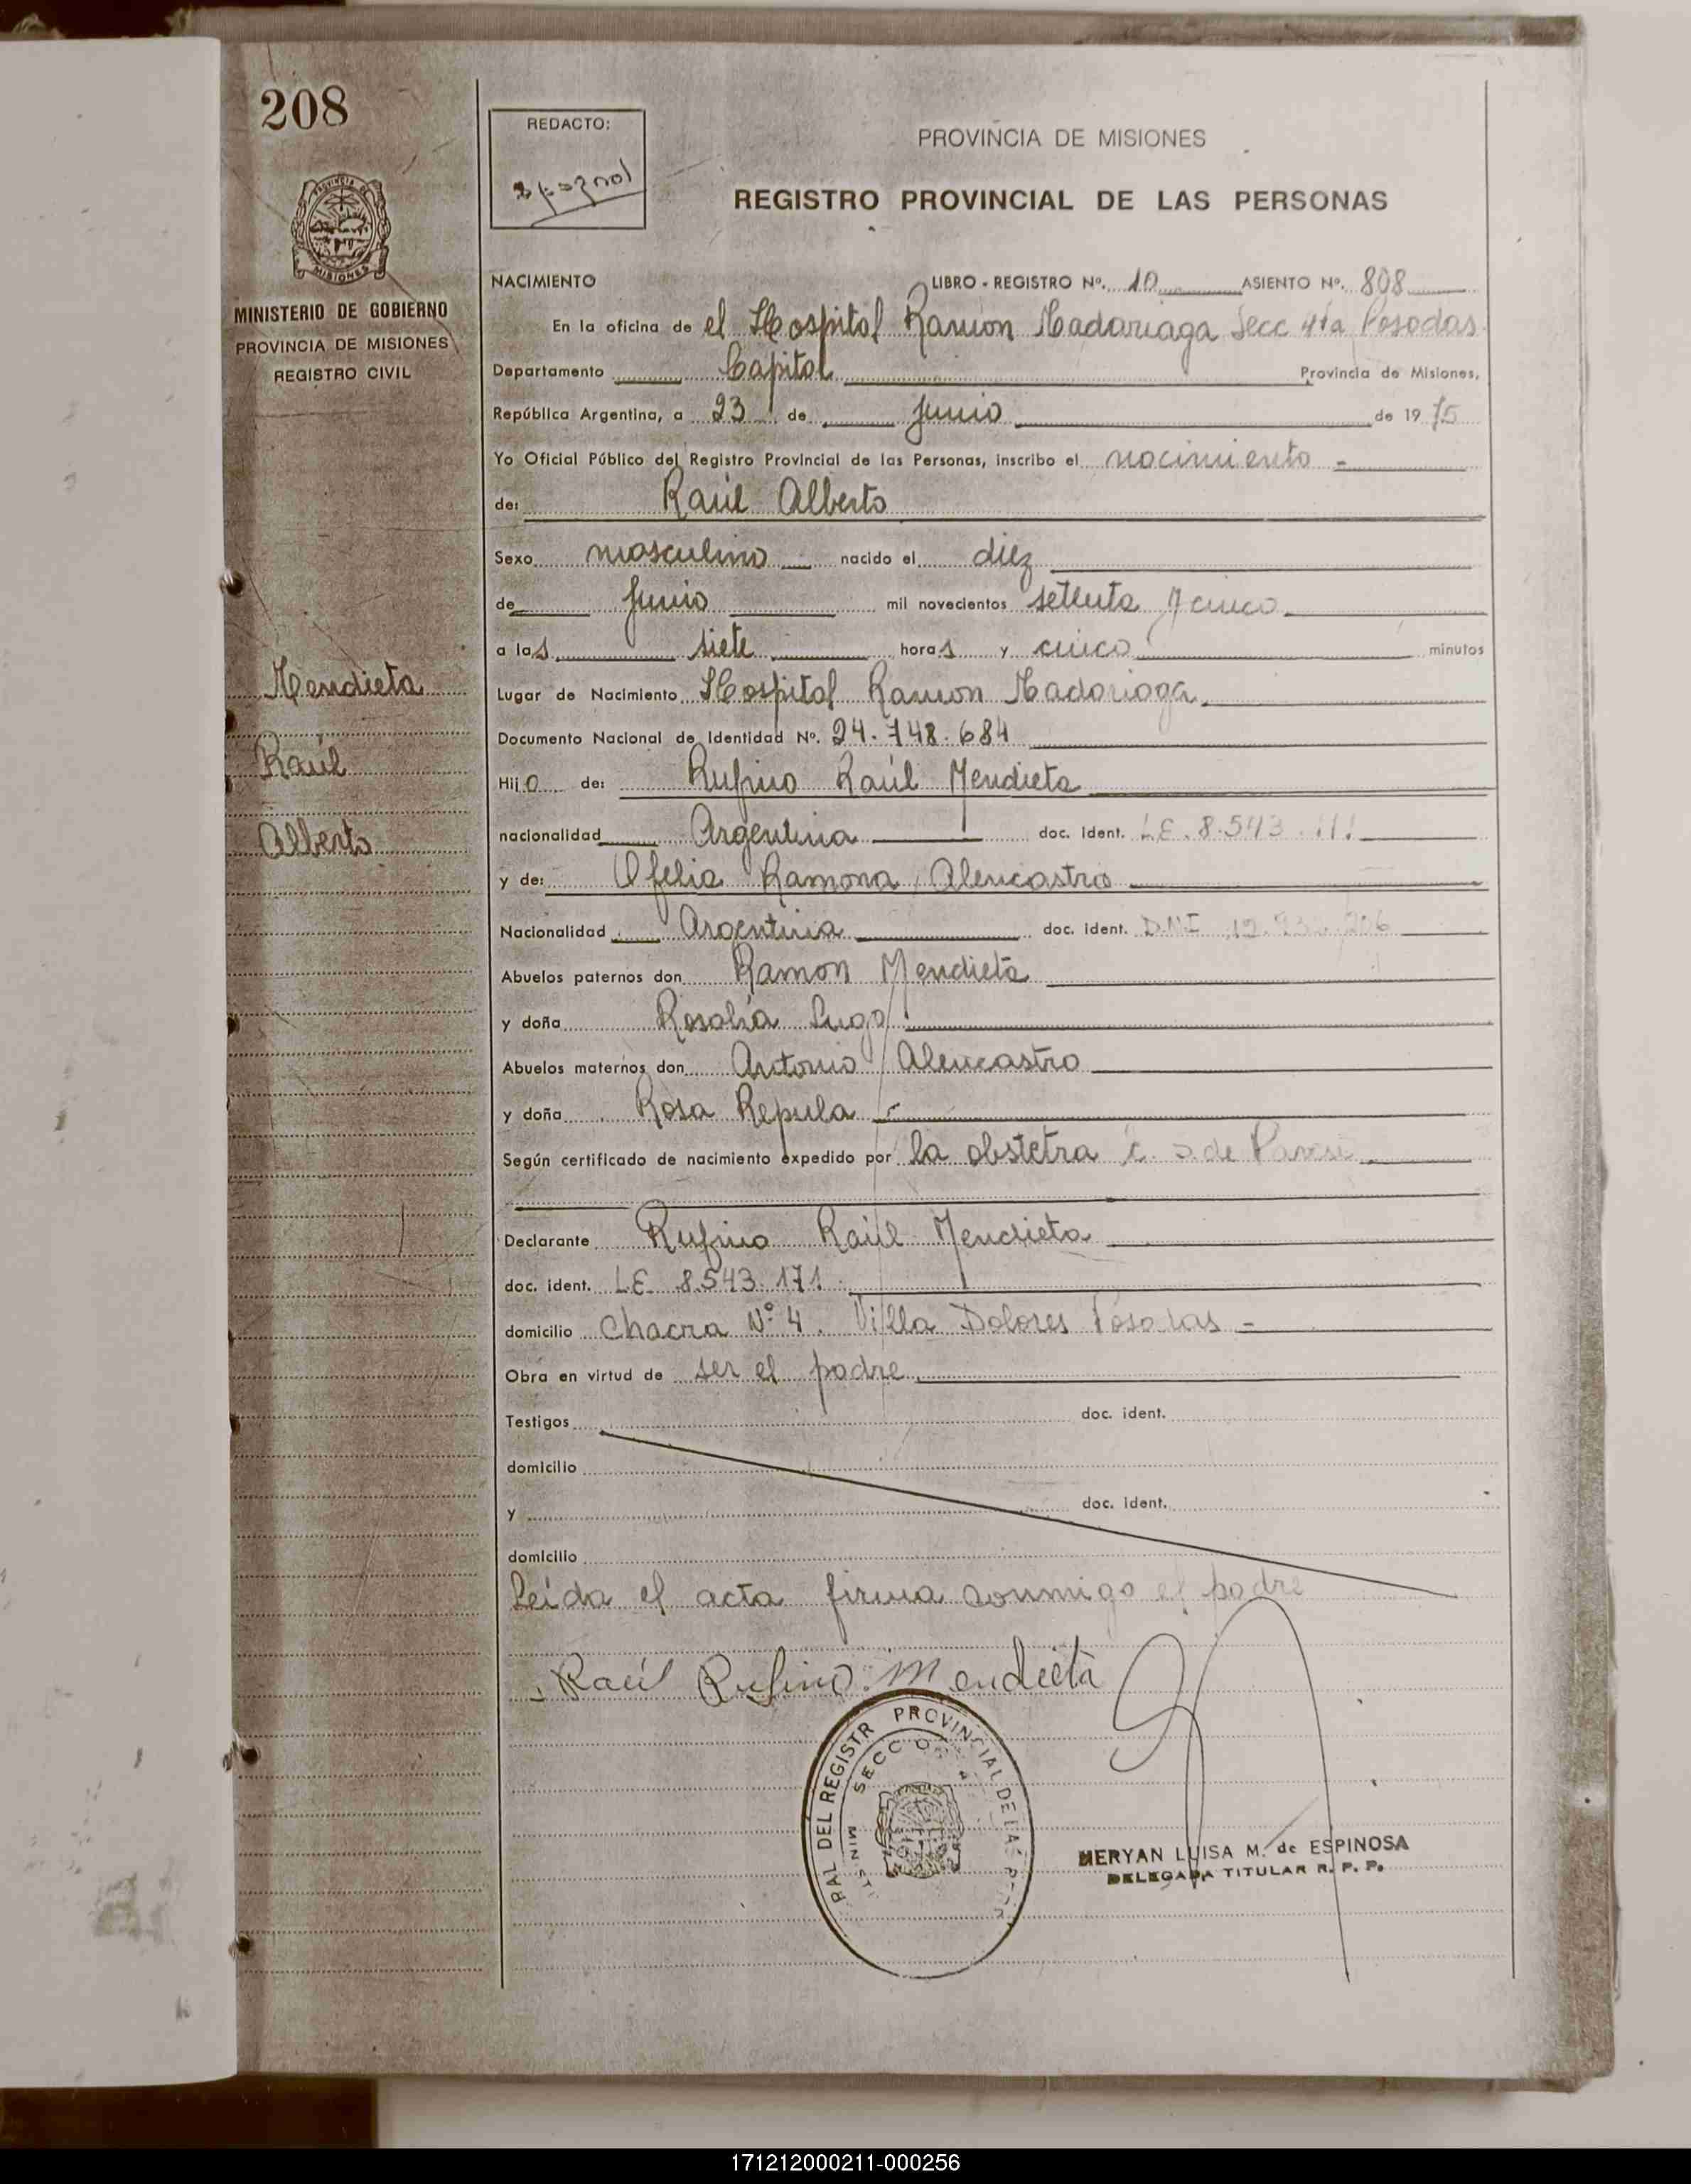 208
PROVINCIA DE
MISIONES
MINISTERIO DE GOBIERNO
PROVINCIA DE MISIONES
REGISTRO CIVIL
Mendieta
Raúl
Alberto
REDACTO:
PROVINCIA DE MISIONES
REGISTRO PROVINCIAL DE LAS PERSONAS
NACIMIENTO LIBRO - REGISTRO Nº. 10 ASIENTO Nº. 808
En la oficina de el Hospital Ramon Madariaga Secc 4ta Posadas
Departamento Capital Provincia de Misiones,
República Argentina, a 23 de Junio de 1975
Yo Oficial Público del Registro Provincial de las Personas, inscribo el nacimiento -
de: Raúl Alberto
Sexo masculino nacido el diez
de Junio mil novecientos setenta y cinco
a las siete horas y cinco minutos
Lugar de Nacimiento Hospital Ramon Madariaga
Documento Nacional de Identidad Nº. 24.748.684
Hijo de: Rufino Raúl Mendieta
nacionalidad Argentina doc. ident. LE. 8.543
y de: Ofelia Ramona Alencastro
Nacionalidad Argentina doc. ident. DNI 12.
Abuelos paternos don Ramon Mendieta
y doña Rosalia Lugo
Abuelos maternos don Antonio Alencastro
y doña Rosa Repula
Según certificado de nacimiento expedido por la obstetra C. S. de
Declarante Rufino Raúl Mendieta
doc. ident. LE 8.543.171
domicilio Chacra Nº 4. Villa Dolores Posadas -
Obra en virtud de ser el padre
Testigos doc. ident.
domicilio
y doc. ident.
domicilio
Leída el acta firma conmigo el padre
Raúl Rufino Mendieta
RAL DEL REGISTR PROVINCIAL DE LAS
SECC
MINIST
MERYAN LUISA M. de ESPINOSA
DELEGADA TITULAR R. P. P.
171212000211-000256